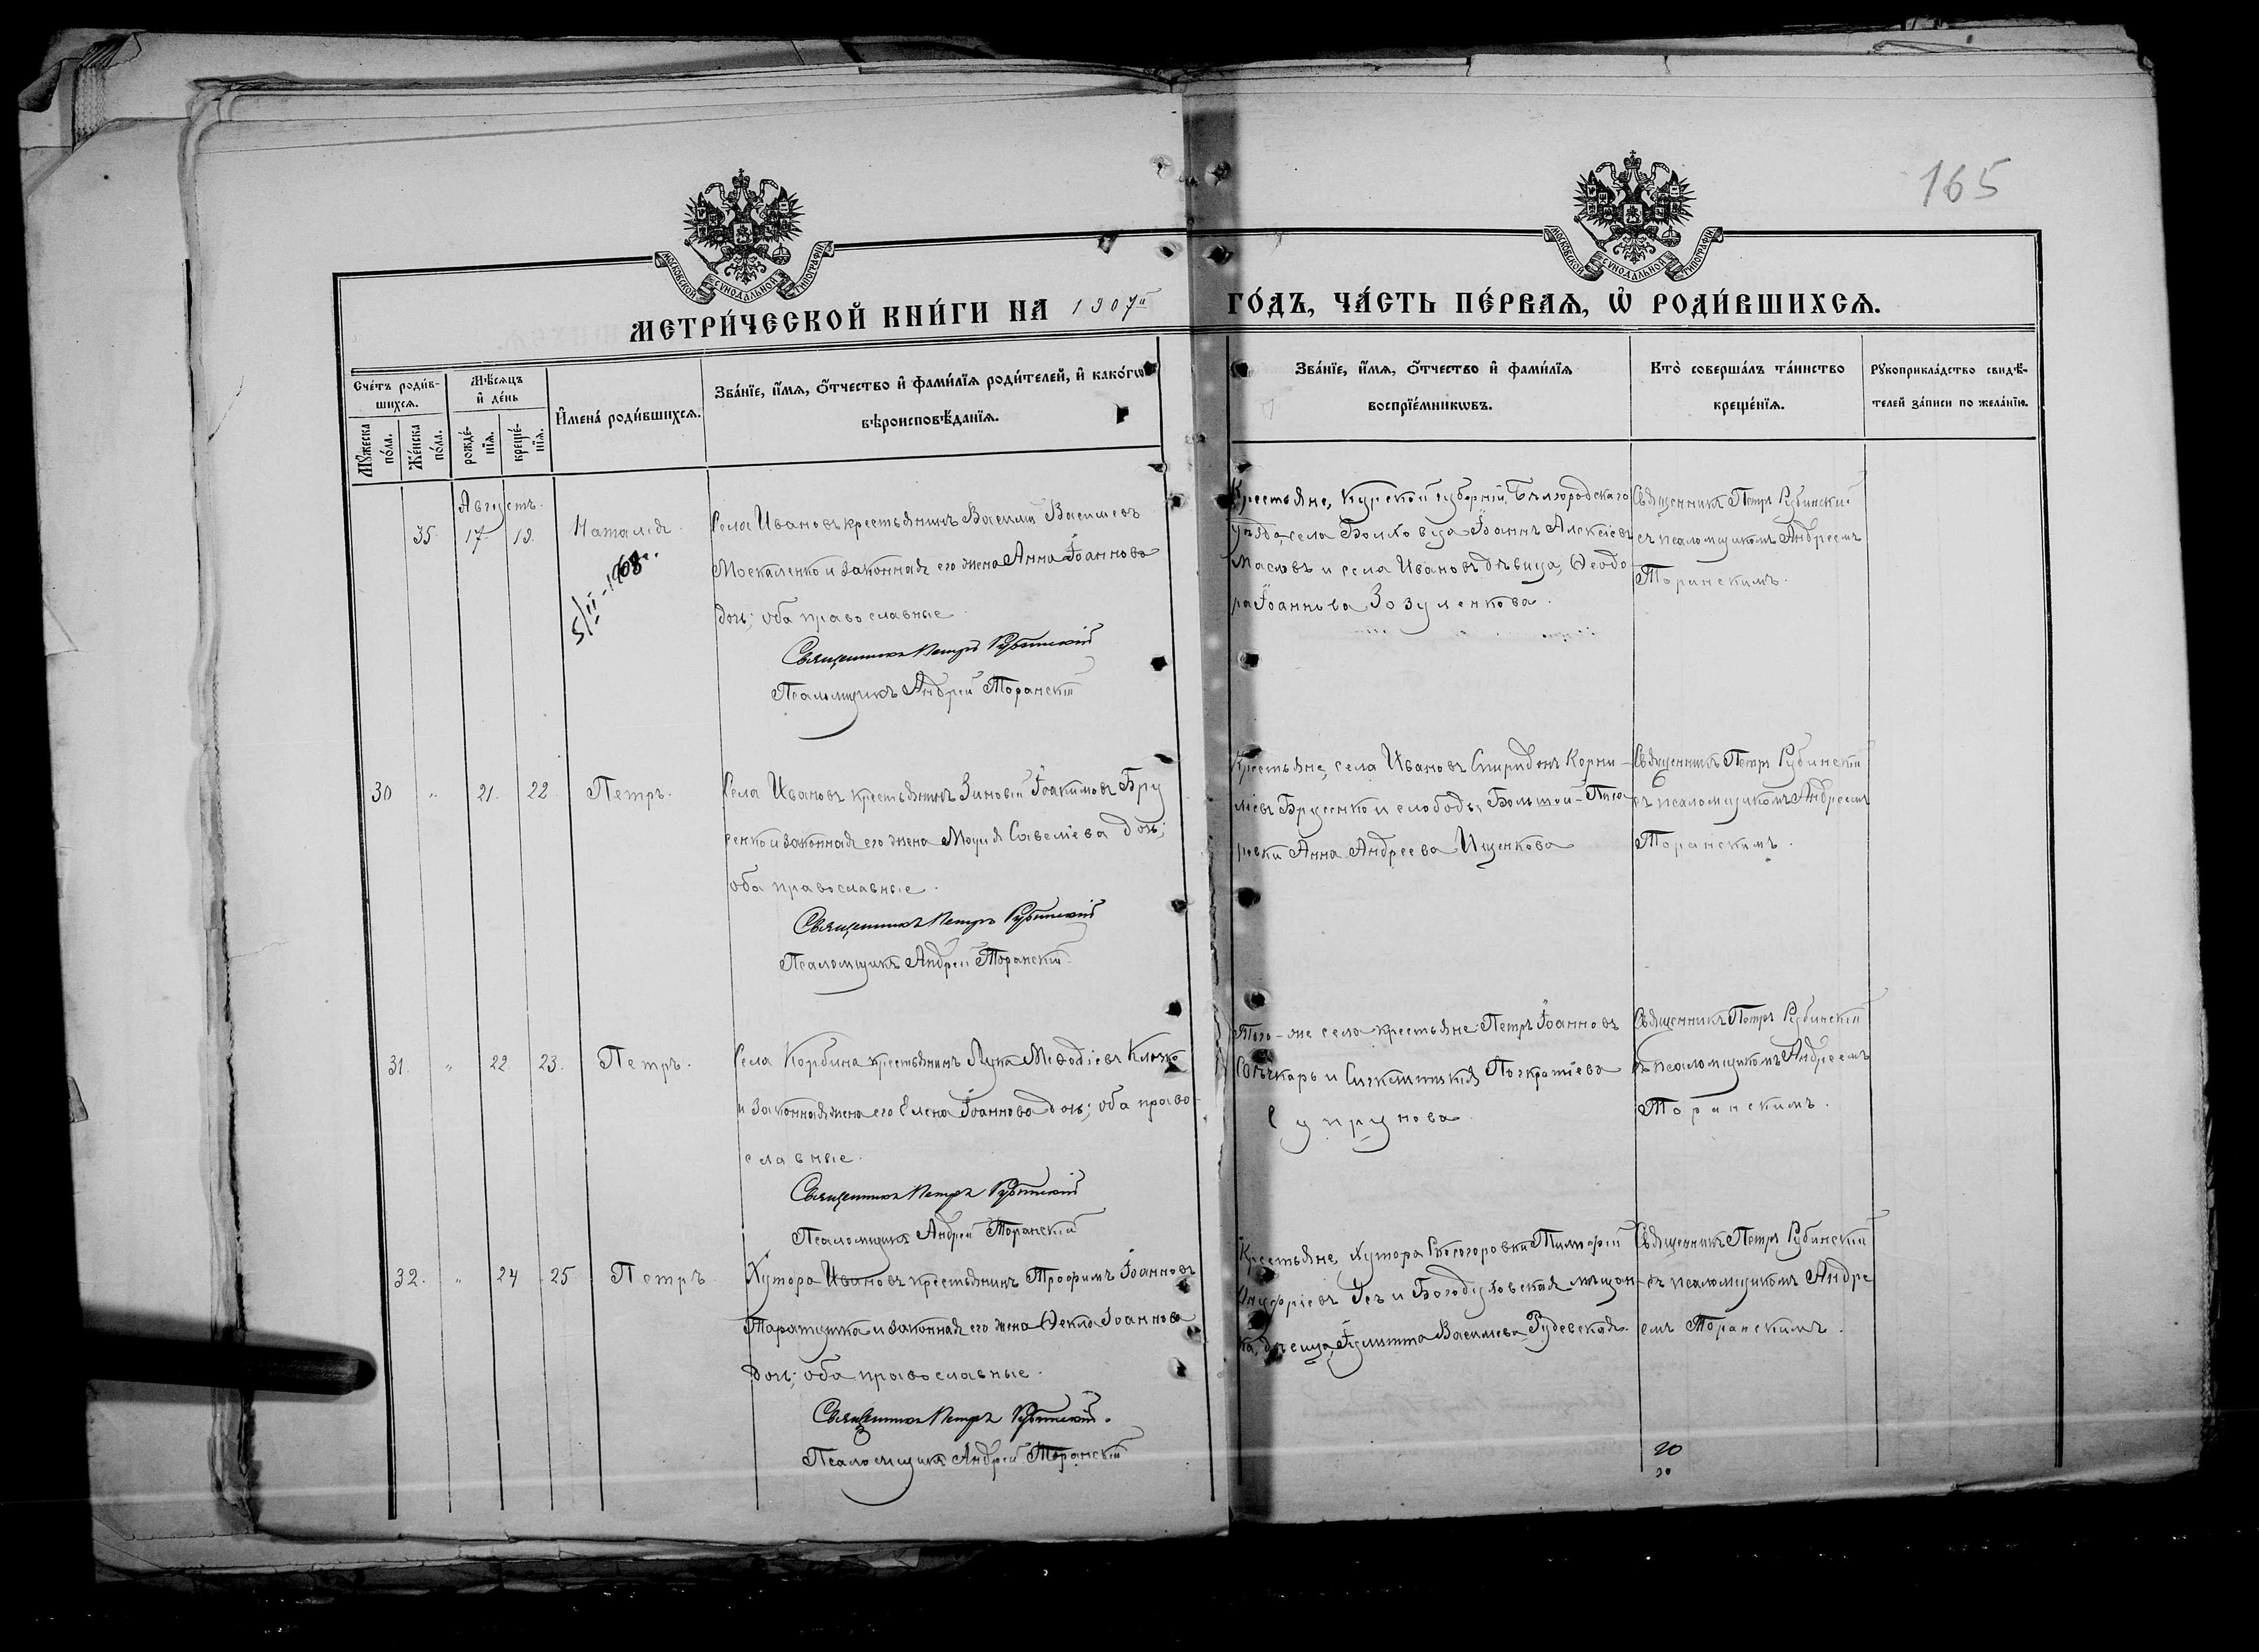 165
МОСКОВСКОЙ СУНОДАЛЬНОЙ ТИПОГРАФІИ
МОСКОВСКОЙ СУНОДАЛЬНОЙ ТИПОГРАФІИ
МЕТРИ́ЧЕСКОЙ КНИ́ГИ НА 1907й ГО́ДЪ, ЧА́СТЬ ПЕ́РВАѦ, Ѡ҆ РОДИ́ВШИХСѦ.
Сче́тъ роди́в-
шихсѧ.
Мꙋ́жеска по́ла.
Же́нска по́ла.
Мѣ́сѧцъ
и҆ де́нь
рожде́-
нїѧ.
креще́-
нїѧ.
И҆мена̀ роди́вшихсѧ.
Зва́нїе, и҆́мѧ, ѻ҆́тчество и҆ фами́лїѧ роди́телей, и҆ како́гѡ
вѣроисповѣ́данїѧ.
Зва́нїе, и҆́мѧ, ѻ҆́тчество и҆ фами́лїѧ
воспрїе́мникѡвъ.
Кто̀ соверша́лъ та́инство
креще́нїѧ.
Рꙋкоприкла́дство свидѣ́-
телей за́писи по жела́нїю.
Августъ.
35. 17 19. Наталія.
5/II-1908.
Села Ивановъ крестьянинъ Василій Васильевъ
Москаленко и законная его жена Анна Іоаннова
дочь; оба православные.
Священникъ Петръ Рубинскій
Псаломщикъ Андрей Торанскій
Крестьяне, Курской губерніи, Бѣлгородскаго
уѣзда, села Іоаннъ Алексіевъ
Масловъ и села Ивановъ дѣвица, Ѳеодо-
ра Іоаннова Зозуленкова.
Священникъ Петръ Рубинскій
съ псаломщикомъ Андреемъ
Торанскимъ.
30 " 21. 22. Петръ.
Села Ивановъ крестьянинъ Зиновій Іоакимовъ Бру
сенко и законная его жена Марія Савеліева дочь;
оба православные.
Священникъ Петръ Рубинскій
Псаломщикъ Андрей Торанскій
Крестьяне, села Ивановъ Спиридонъ Корни-
ліевъ Брусенко и слободы Большой-Писа
ревки Анна Андреева Ищенкова
Священникъ Петръ Рубинскій
съ псаломщикомъ Андреемъ
Торанскимъ.
31. " 22. 23. Петръ.
Села Корбина крестьянинъ Лука Меѳодіевъ Клочко
и законная жена его Елена Іоаннова дочь; оба право-
славные.
Священникъ Петръ Рубинскій
Псаломщикъ Андрей Торанскій
Того-же села крестьяне Петръ Іоанновъ
и Сигклитикія Панкратіева
Супрунова.
Священникъ Петръ Рубинскій
съ псаломщикомъ Андреемъ
Торанскимъ.
32. " 24 25 Петръ.
Хутора Ивановъ крестьянинъ Трофимъ Іоанновъ
Таратушка и законная его жена Ѳекла Іоаннова
дочь; оба православные.
Священникъ Петръ Рубинскій.
Псаломщикъ Андрей Торанскій
Крестьяне, хутора Тимофей
Онуфріевъ Усъ и Богодуховская мѣщан-
ка, дѣвица, Іулитта Василіева
Священникъ Петръ Рубинскій
съ псаломщикомъ Андре
емъ Торанскимъ.
20
20